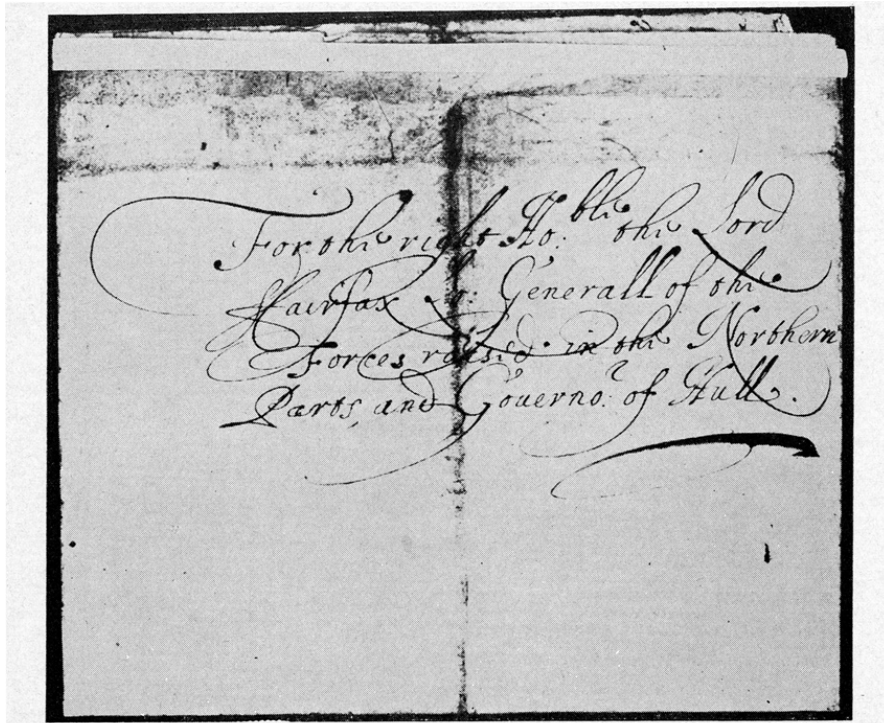 For the right Ho:ble the Lord
ffairfax Lo: Generall of the
Forces raised in the Northern
Parts, and Gouerno:r of Hull.